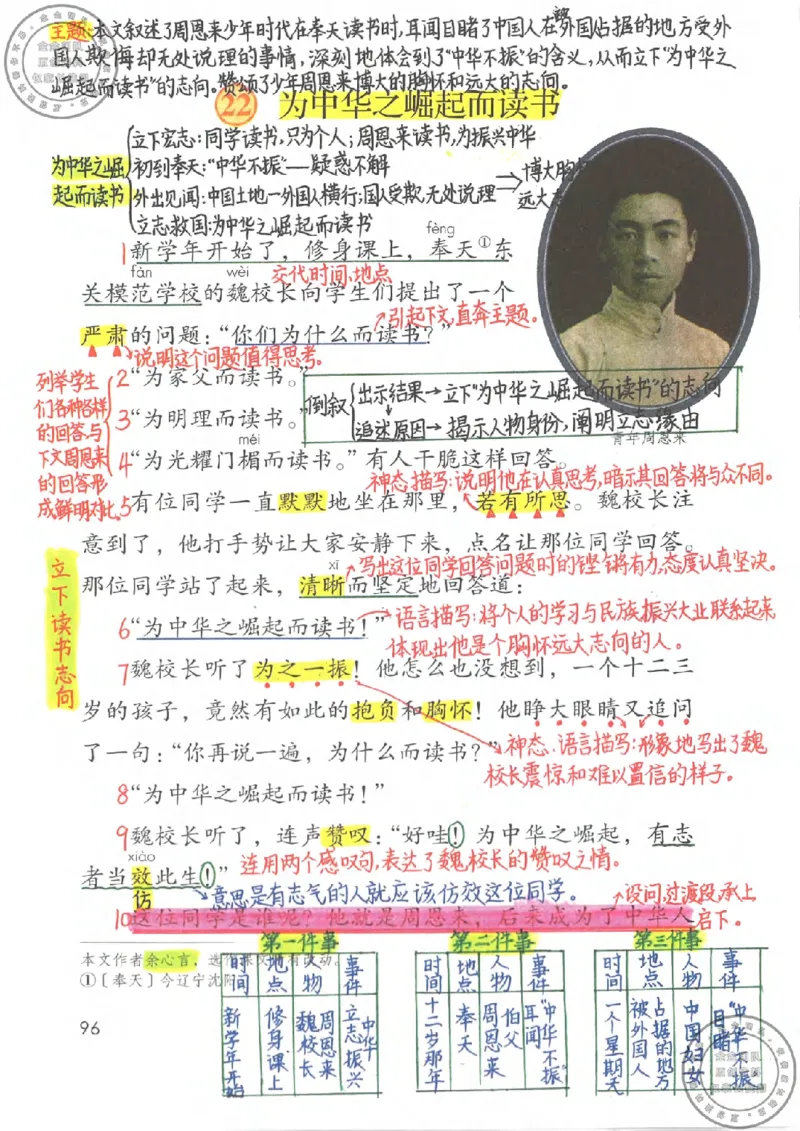 主题:本文叙述了周恩来少年时代在奉天读书时,耳闻目睹了中国人在外国占据的地方受外
国人欺侮却无处说理的事情,深刻地体会到了“中华不振”的含义,从而立下“为中华之
崛起而读书”的志向。赞颂了少年周恩来博大的胸怀和远大的志向。
22 为中华之崛起而读书
为中华之崛
起而读书
立下宏志:同学读书,只为个人;周恩来读书,为振兴中华
初到奉天:“中华不振”—疑惑不解
外出见闻:中国土地—外国人横行;国人受欺,无处说理
立志救国:为中华之崛起而读书
博大胸
远大志
fèng
1新学年开始了,修身课上,奉天①东
fàn wèi 交代时间、地点
关模范学校的魏校长向学生们提出了一个
引起下文,直奔主题。
严肃的问题:“你们为什么而读书?”
说明这个问题值得思考。
列举学生
们各种各样
的回答,与
下文周恩来
的回答形
成鲜明对比。
2“为家父而读书。”
倒叙
出示结果→立下“为中华之崛起而读书”的志向
追述原因→揭示人物身份,阐明立志缘由
3“为明理而读书。”
青年周恩来
méi
4“为光耀门楣而读书。”有人干脆这样回答。
神态描写:说明他在认真思考,暗示其回答将与众不同。
5有位同学一直默默地坐在那里,若有所思。魏校长注
意到了,他打手势让大家安静下来,点名让那位同学回答。
xī 写出这位同学回答问题时的铿锵有力,态度认真坚决。
那位同学站了起来,清晰而坚定地回答道:
立下读书志向
6“为中华之崛起而读书!”
语言描写:将个人的学习与民族振兴大业联系起来,
体现出他是个胸怀远大志向的人。
7魏校长听了为之一振!他怎么也没想到,一个十二三
岁的孩子,竟然有如此的抱负和胸怀!他睁大眼睛又追问
了一句:“你再说一遍,为什么而读书?”
神态、语言描写:形象地写出了魏
校长震惊和难以置信的样子。
8“为中华之崛起而读书!”
9魏校长听了,连声赞叹:“好哇!为中华之崛起,有志
xiào
者当效此生!”
连用两个感叹句,表达了魏校长的赞叹之情。
仿
意思是有志气的人就应该仿效这位同学。
设问,过渡段,承上
10这位同学是谁呢?他就是周恩来,后来成为了中华人
启下。
第一件事 第二件事 第三件事
本文作者余心言,选作课文时有改动。
①〔奉天〕今辽宁沈阳
时间 地点 人物 事件
新学年开始 修身课上 魏校长 周恩来 立志振兴中华
时间 地点 人物 事件
十二岁那年 奉天 周恩来 伯父 耳闻“中华不振”
时间 地点 人物 事件
一个星期天 被外国人占据的地方 中国妇女 目睹“中华不振”
96